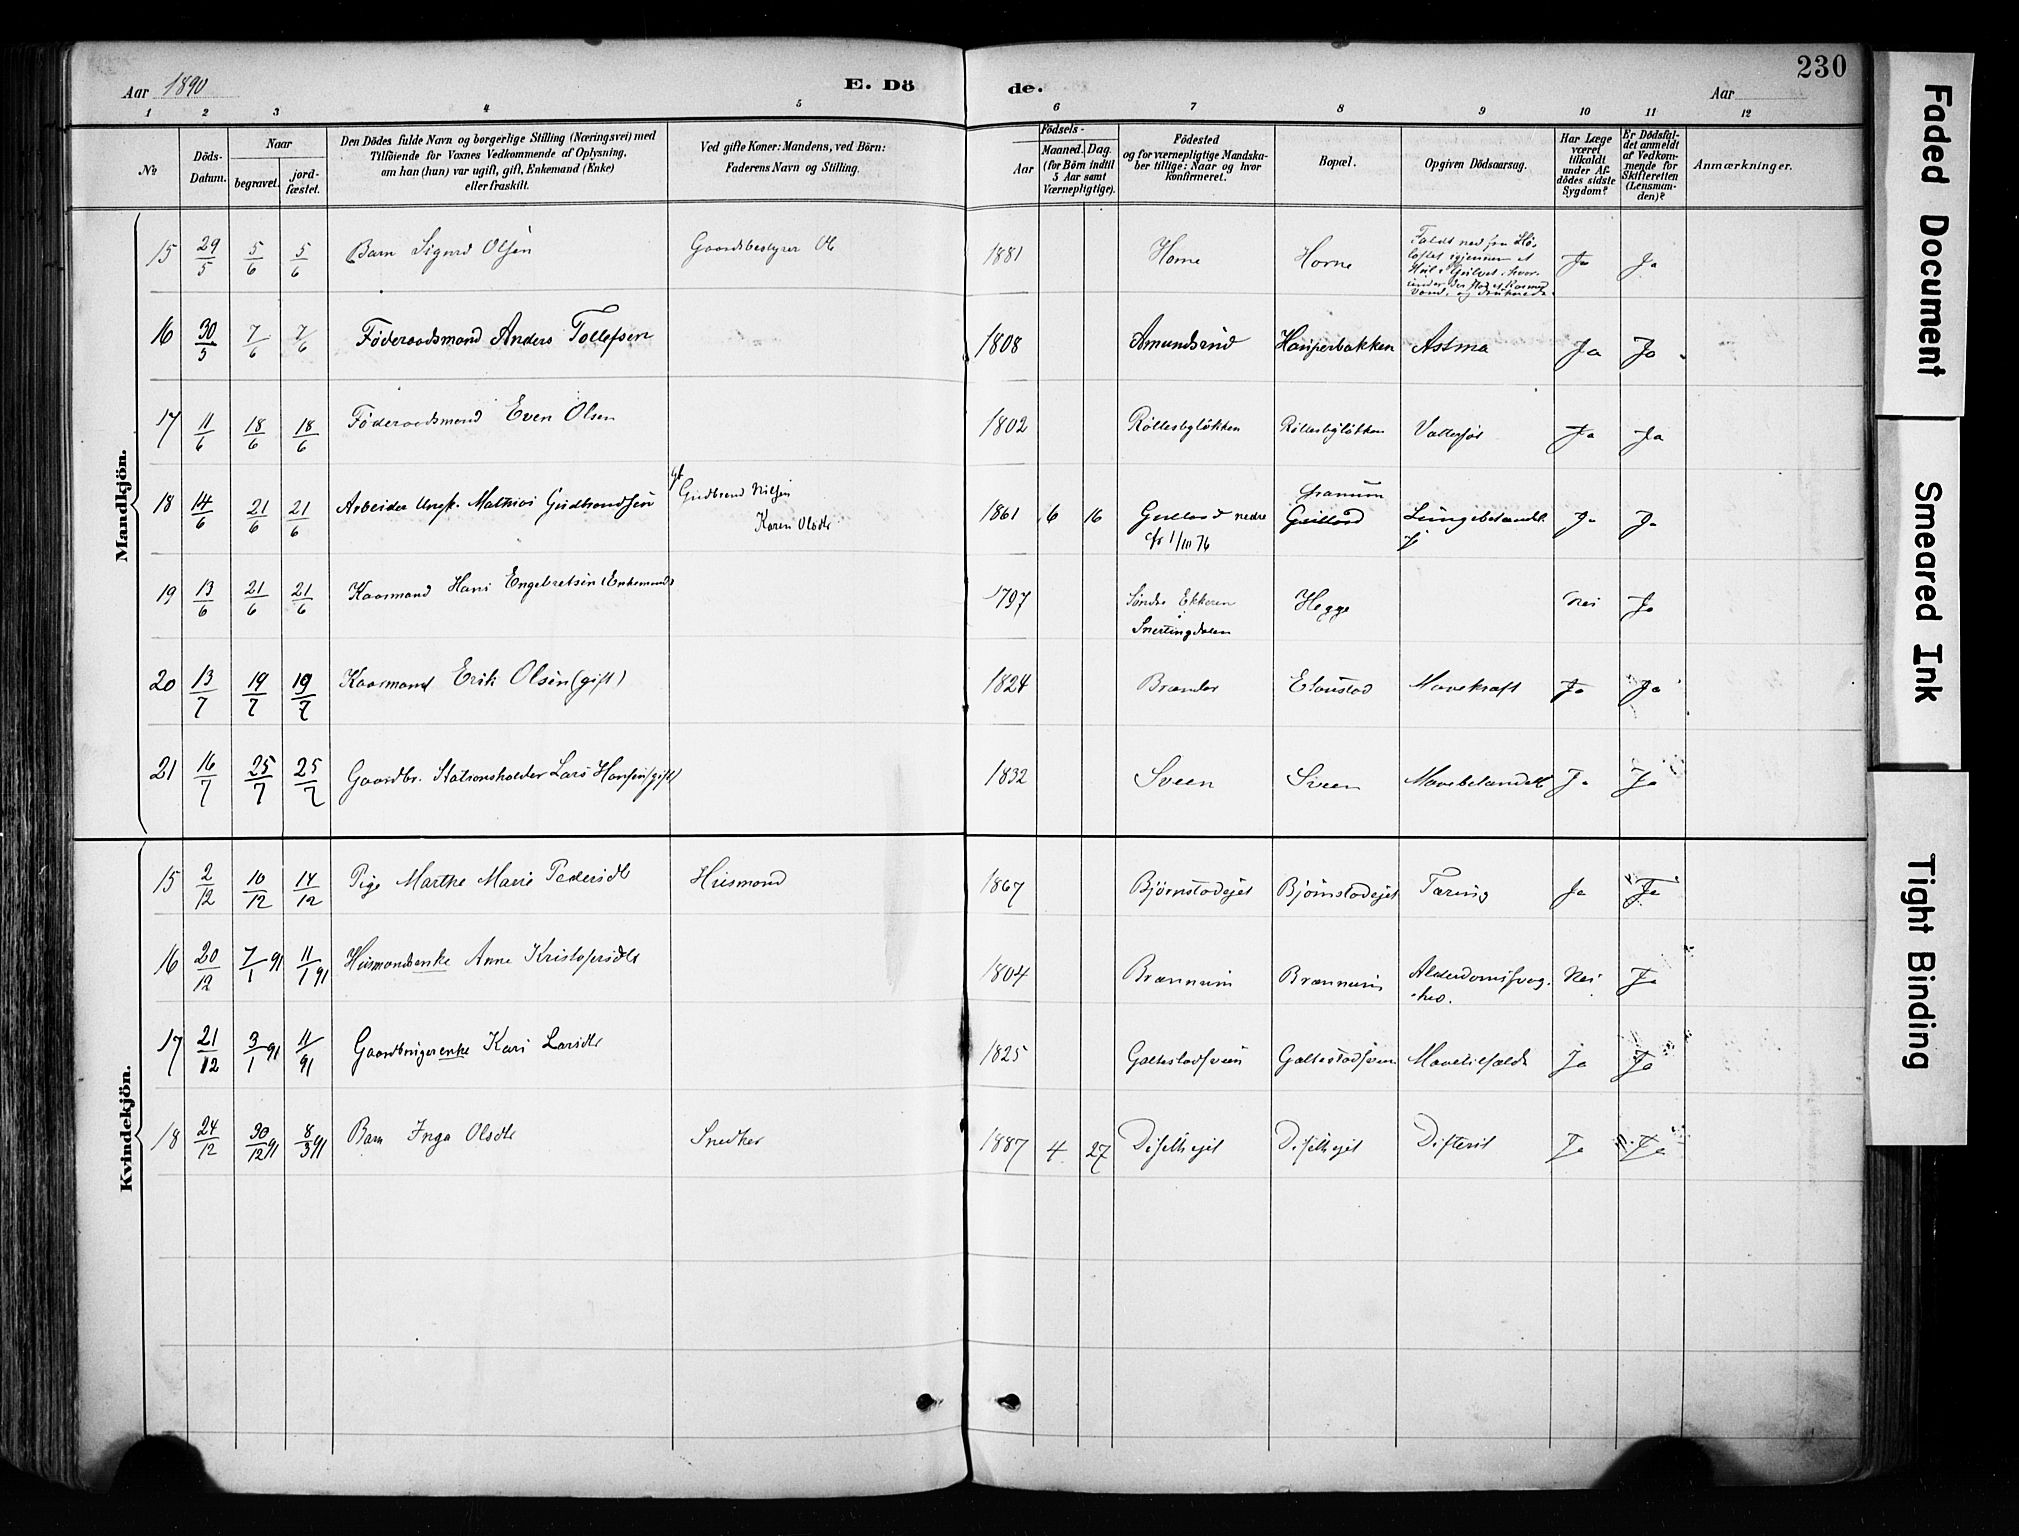 230
Aar 1890
E. Dö
de.
Aar
1 2 3 4 5 6 7 8 9 10 11 12
№
Döds-Datum.
Naar
begravet.
jord-fæstet.
Den Dödes fulde Navn og borgerlige Stilling (Næringsvei) med
Tilföiende for Voxnes Vedkommende af Oplysning,
om han (hun) var ugift, gift, Enkemand (Enke)
eller fraskilt.
Ved gifte Koner: Mandens, ved Börn:
Faderens Navn og Stilling.
Födsels-
Aar
Maaned. Dag.
(for Börn indtil
5 Aar samt
Værnepligtige).
Födested
og for værnepligtige Mandska-
ber tillige: Naar og hvor
konfirmeret.
Bopæl.
Opgiven Dödsaarsag.
Har Læge
været
tilkaldt
under Af-
dödes sidste
Sygdom?
Er Dödsfal-
det anmeldt
af Vedkom-
mende for
Skifteretten
(Lensman-
den)?
Anmærkninger.
Mandkjön.
15 29/5 5/6 5/6 Barn Sigurd Olsen Gaardsbestyrer Ole 1881 Horne Horne Faldt ned fra Hø- Ja Ja
loftet igjennem et
Hul i Gulvet, hvor-
under der stod
Vand, og druknede.
16 30/5 7/6 7/6 Føderaadsmand Anders Tollefsen 1808 Amundsrud Astma Ja Ja
17 11/6 18/6 18/6 Føderaadsmand Even Olsen 1802 Røllesbyløkken Røllesbyløkken Vattersot Ja Ja
18 14/6 21/6 21/6 Arbeider Ungk. Mathias Gudbrandsen Gudbrand Nilsen 1861 6 16 nedre Granum Ja Ja
Karen Olsdtr
1/III 76
19 13/6 21/6 21/6 Kaarmand Hans Engebretsen (Enkemand) 1797 Søndre Ekkeren Hegge Nei Ja
i
Snertingdalen
20 13/7 19/7 19/7 Kaarmand Erik Olsen (gift) 1824 Mavekræft Ja Ja
21 16/7 25/7 25/7 Gaardbr. Stationsholder Lars Hansen (gift) 1832 Sveen Sveen Ja Ja
Kvindekjön.
15 2/12 10/12 14/12 Pige Marthe Marie Pedersdtr Husmand 1867 Bjørnstadejet Bjørnstadejet Tæring Ja Ja
16 20/12 7/1 91 11/1 91 Husmandsenke Anne Kristofersdtr 1804 Brænnum Brænnum Alderdomssvag- Nei Ja
hed.
17 21/12 3/1 91 11/91 Gaardbrugerenke Kari Larsdtr 1825 Galtestadsveen Galtestadsveen Mavetilfælde Ja Ja
18 24/12 30/12 91 8/3 91 Barn Inga Olsdtr Snedker 1887 4 27 Difterit Ja Ja
Faded Document
Smeared Ink
Tight Binding